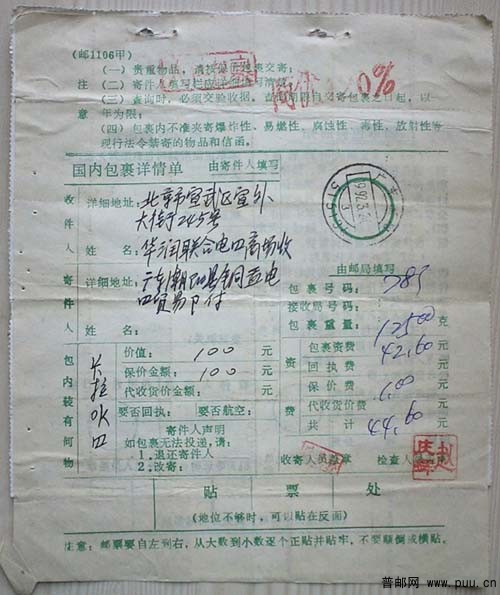 (邮1106甲)
(一) 贵重物品，请按保价包裹交寄；
注 (二) 寄件人填写栏应详细填写清楚；
(三) 查询时，必须交验收据，查询期自交寄包裹之日起，以一
意 年为限；
(四) 包裹内不准夹寄爆炸性、易燃性、腐蚀性、毒性、放射性等
现行法令禁寄的物品和信函。
0%
国内包裹详情单 由寄件人填写
收件人
详细地址：北京市宣武区宣外
大街245号
姓名：华润联合电四商场收
寄件人
详细地址：广东潮阳县铜盂电
四贸易P付
姓名：
包内装有何物
卡拉OK四
价值：100元
保价金额：100元
代收货价金额：元
要否回执： 要否航空：
寄件人声明
如包裹无法投递，请：
1.退还寄件人
2.改寄：
由邮局填写
包裹号码：785
接收局号码：
包裹重量：12500克
资费
包裹资费 42.60元
回执费 元
保价费 1.00元
代收货价费 元
共计 44.60元
收寄人员盖章 检查人员
赵
贴票处
(地位不够时，可以贴在反面)
注意：邮票要自左到右，从大数到小数逐个正贴并贴牢，不要颠倒或横贴。
普邮网 www.puu.cn